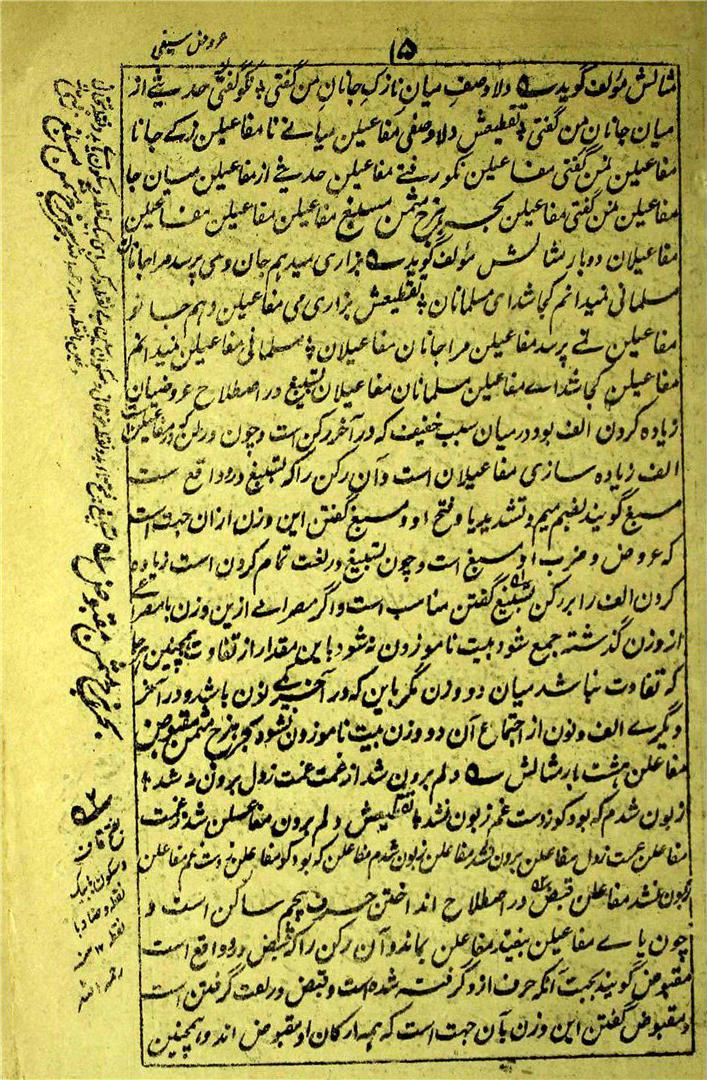 ۱۵
عروض سیفی
مثالش مؤلف گوید دلا وصف میان نازک جانان من گفتی نکو گفتی حدیثی از
میان جانان من گفتی تقطیعش دلا وصفی مفاعیلن میانی نا مفاعیلن زکے جانا
مفاعیلن نمن گفتی مفاعیلن نکو گفتی مفاعیلن حدیثے از مفاعیلن میان جا
مفاعیلن نمن گفتی مفاعیلن بحر ہزج مثمن مسبغ مفاعیلن مفاعیلن مفاعیلن
مفاعیلان دو بار مثالش مؤلف گوید بزاری میدہم جان و نمی پرسد مرا جانان
مسلمانی نمیدانم کجا شد ای مسلمانان تقطیعش بزاری می مفاعیلن دہم جا نو
مفاعیلن نمے پرسد مفاعیلن مرا جانان مفاعیلان مسلمانی مفاعیلن نمیدانم
مفاعیلن کجا شد اے مفاعیلن مسلمانان مفاعیلان تسبیغ در اصطلاح عروضیان
زیادہ کردن الف بود در میان سبب خفیف کہ در آخر رکن است و چون در لن کہ در مفاعیلن است
الف زیادہ سازی مفاعیلان است و آن رکن را کہ تسبیغ درو واقع ست
مسبغ گویند بضم میم و تشدید با و فتح او و مسبغ گفتن این وزن از ان جہت است
کہ عروض و ضرب او مسبغ است و چون تسبیغ در لغت تمام کردن است زیادہ
کردن الف را بر رکن تسبیغ گفتن مناسب است و اگر مصراعے ازین وزن با مصراعے
از وزن گذشتہ جمع شود بیت ناموزون نہ شود باین مقدار از تفاوت ہمچنین ہر جا
کہ تفاوت نباشد میان دو وزن مگر باین کہ در آخر یکے نون باشد و در آخر
دیگرے الف و نون از اجتماع آن دو وزن بیت ناموزون نشود بحر ہزج مثمن مقبوض
مفاعلن ہشت بار مثالش دلم برون شد از غمت غمت ز دل برون نہ شد
زبون شدم کہ بود کو ز دست غم زبون نشد تقطیعش دلم برون مفاعلن شد از غمت
مفاعلن غمت ز دل مفاعلن برون نشد مفاعلن زبون شدم مفاعلن کہ بود کو مفاعلن ز دست غم مفاعلن
زبون نشد مفاعلن قبض در اصطلاح انداختن حرف پنجم ساکن است و
چون یاے مفاعیلن بیفتد مفاعلن بماند و آن رکن را کہ قبض درو واقع است
مقبوض گویند بجہت آنکہ حرف ازو گرفتہ شدہ است و قبض در لغت گرفتن است
و مقبوض گفتن این وزن بآن جہت است کہ ہمہ ارکان او مقبوض اند و ہمچنین
بحر ہزج مثمن مسبغ
بحر ہزج مثمن مقبوض
بفتح قاف
و سکون باے یک
نقطہ و ضاد با
نقطہ ۱۲ منہ
رحمہ اللہ